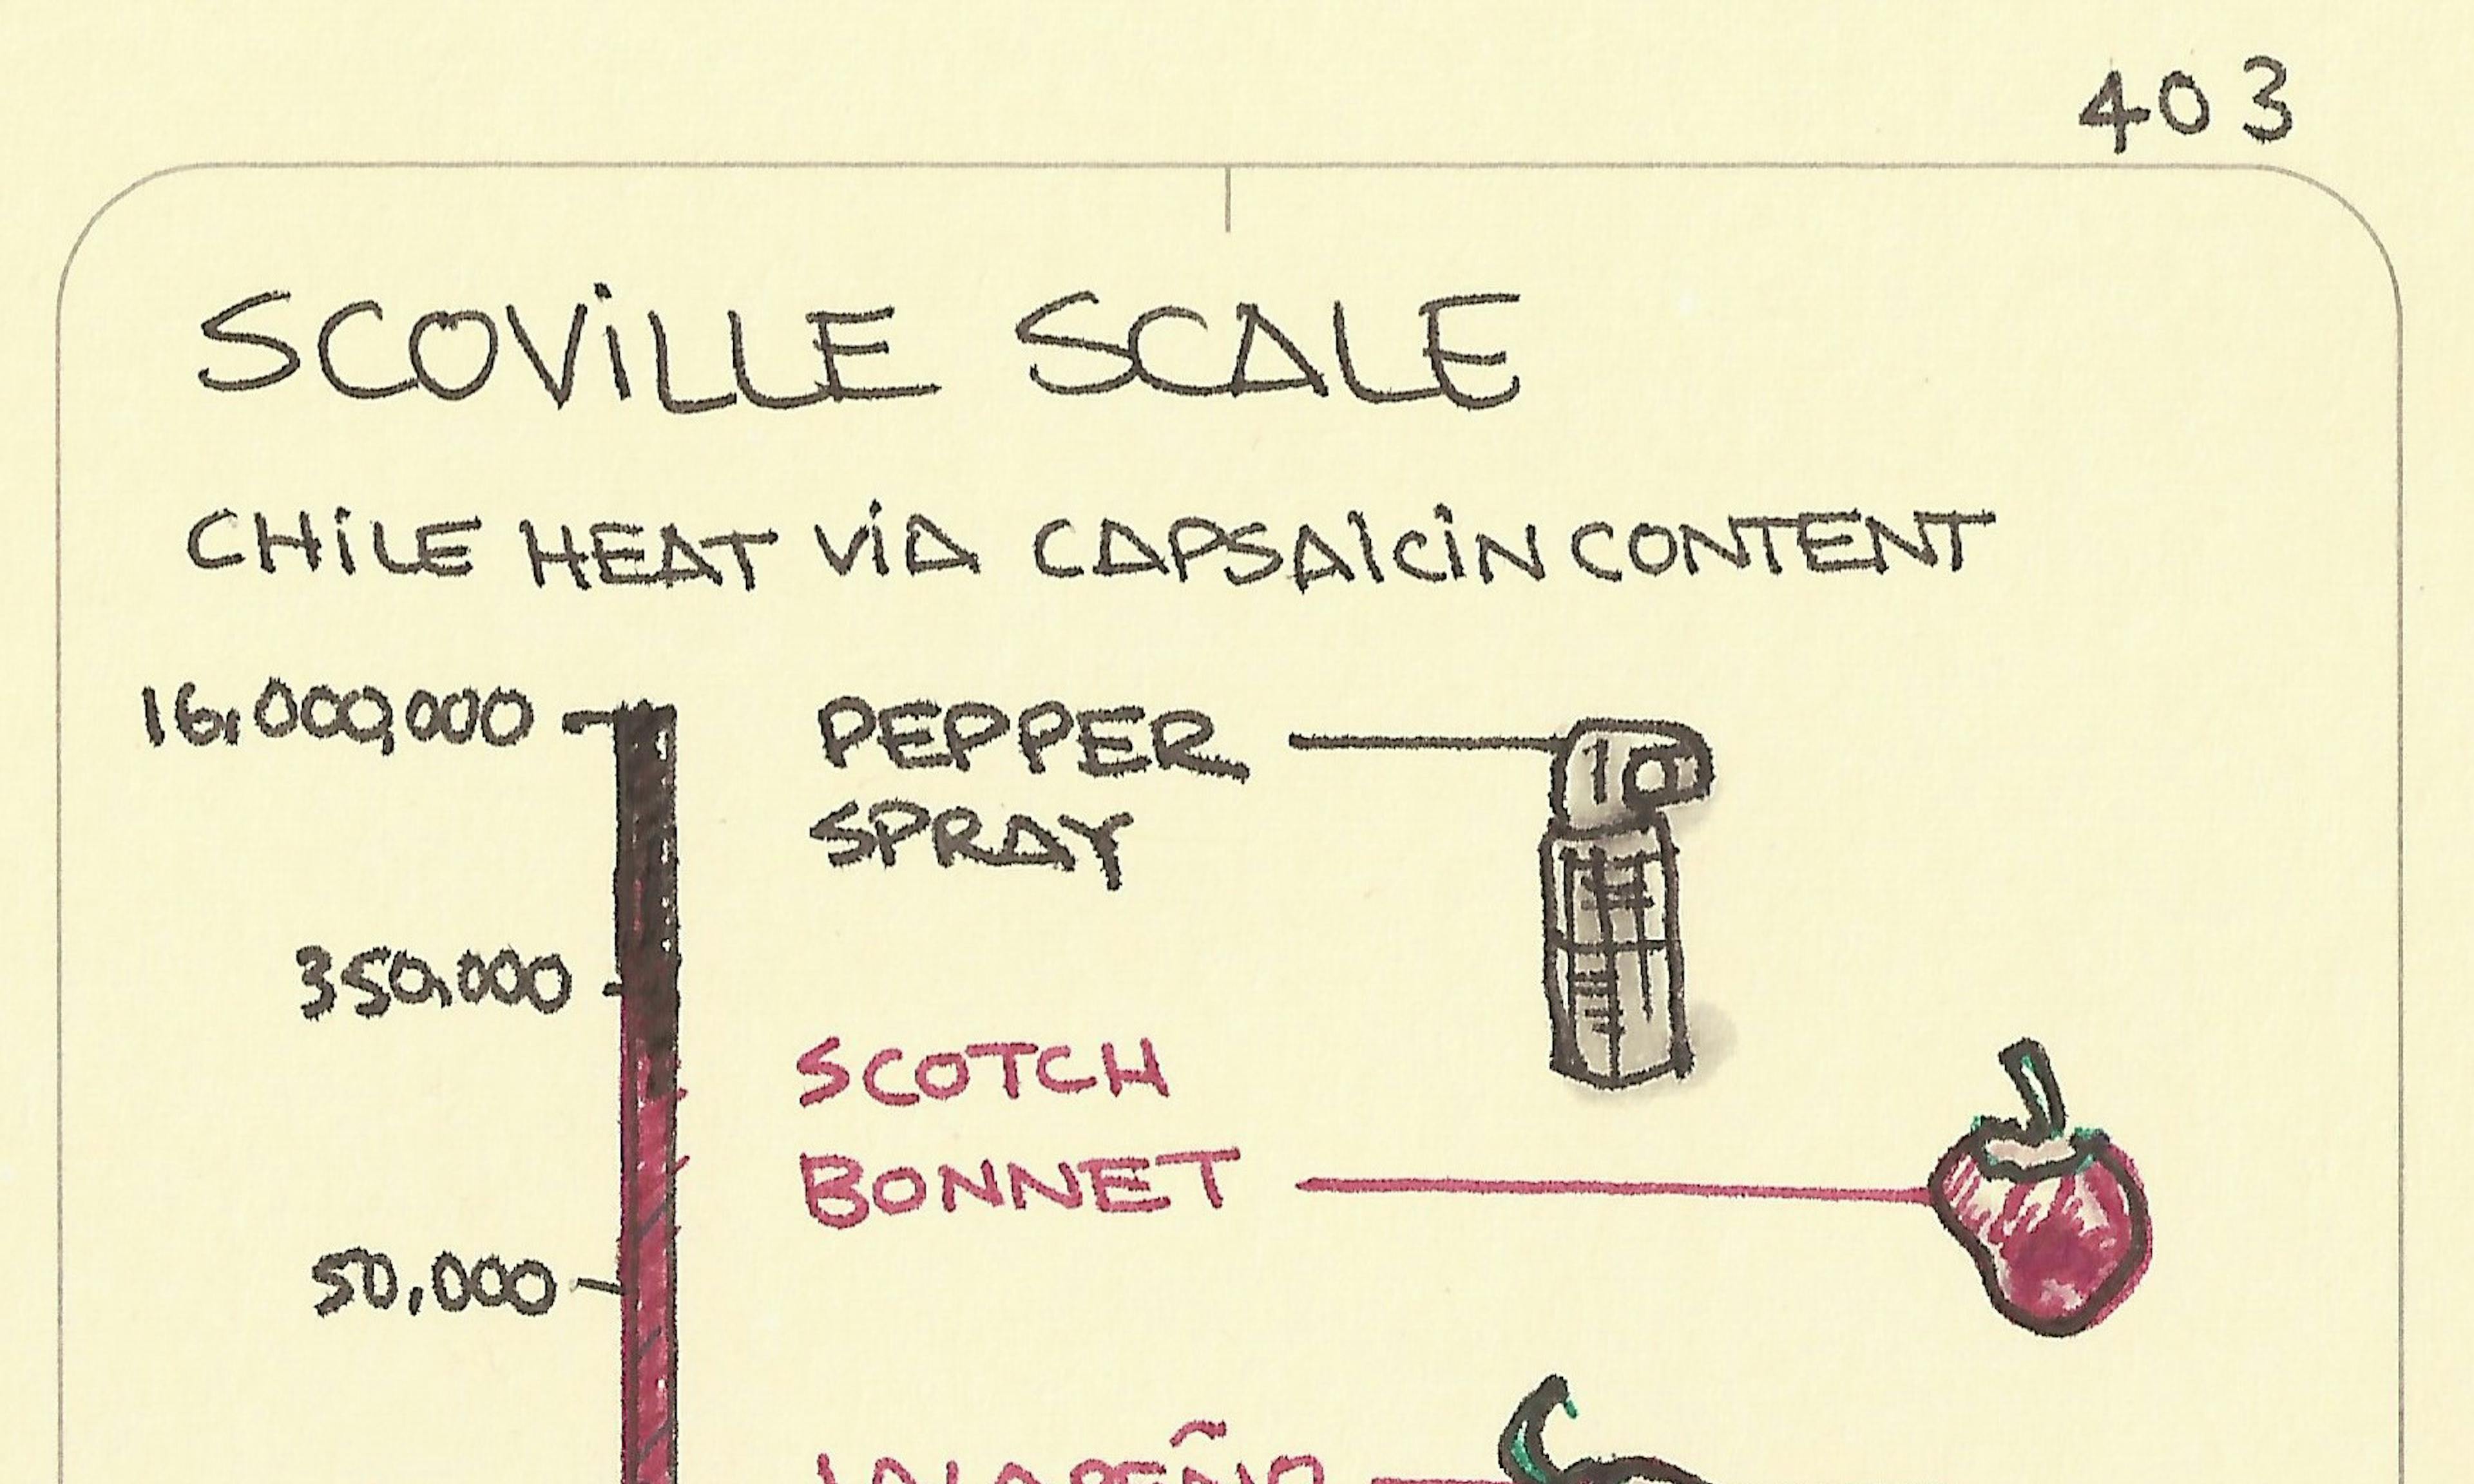 403
SCOVILLE SCALE
CHILE HEAT VIA CAPSAICIN CONTENT
16,000,000
PEPPER
SPRAY
350,000
SCOTCH
BONNET
50,000
JALAPEÑO